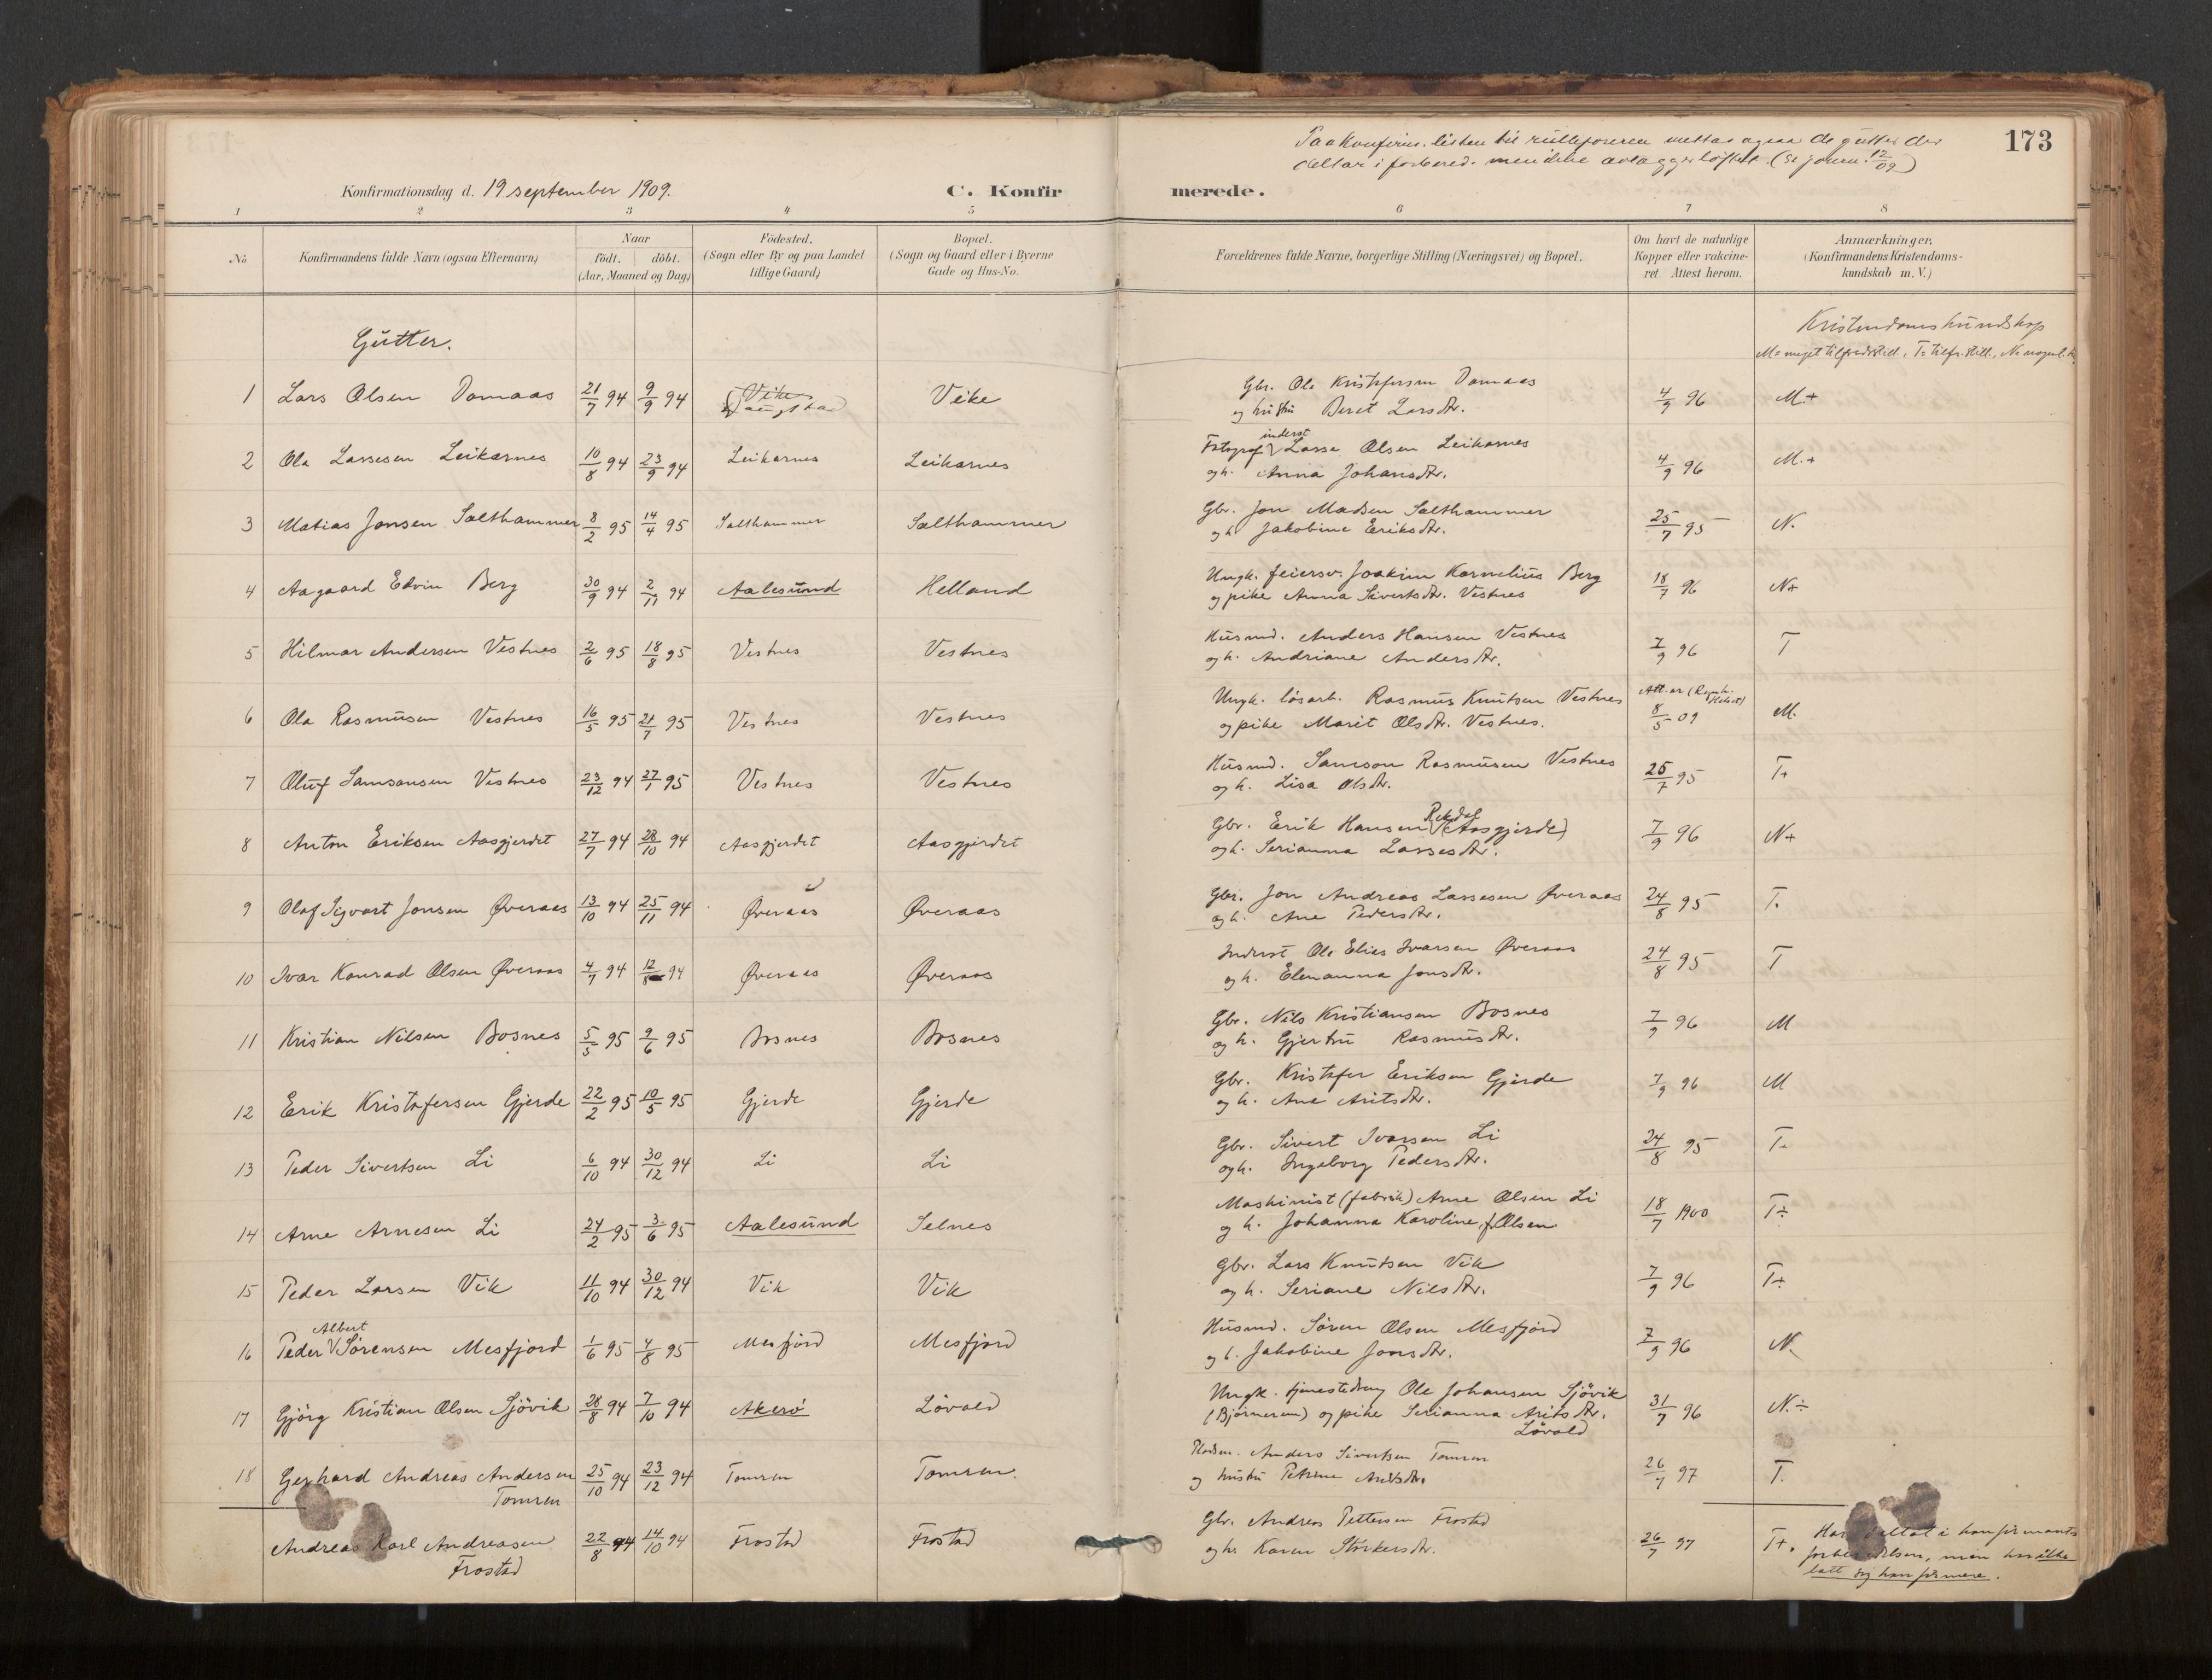 173
Paa konfirm. listen til rulleføreren mettas ogsaa de gutter der
deltar i forbered. men ikke avlægger løftet. (Se journ. 12/09)
Konfirmationsdag d. 19 september 1909.
C. Konfirmerede.
1 2 3 4 5 6 7 8
No.
Konfirmandens fulde Navn (ogsaa Efternavn)
Naar
födt. döbt.
(Aar, Maaned og Dag)
Födested.
(Sogn eller By og paa Landet
tillige Gaard)
Bopæl.
(Sogn og Gaard eller i Byerne
Gade og Hus-No.
Forældrenes fulde Navne, borgerlige Stilling (Næringsvei) og Bopæl.
Om havt de naturlige
Kopper eller vakcine-
ret. Attest herom.
Anmærkninger.
(Konfirmandens Kristendoms-
kundskab m. V.)
Gutter.
Kristendomskundskap
M= meget tilfredsstill., T= tilfr.still., N= nogenl. t.
1 Lars Olsen Damaas 21/7 94 9/9 94 Vike Vike Gbr. Ole Kristofersen Damaas 4/9 96 M.+
og hustru Beret Larsdtr.
2 Ola Lassesen Leikarnes 10/8 94 23/9 94 Leikarnes Leikarnes Fotograf inderst Lasse Olsen Leikarnes 4/9 96 M.+
og h. Anna Johansdtr.
3 Matias Jonsen Salthammer 8/2 95 14/4 95 Salthammer Salthammer Gbr. Jon Madsen Salthammer 25/7 95 N.
og h. Jakobine Eriksdtr.
4 Aagaard Edvin Berg 30/9 94 2/11 94 Aalesund Helland Ungk. feiersv. Joakim Kornelius Berg 18/7 96 N+
og pike Anna Sivertsdtr. Vestnes
5 Hilmar Andersen Vestnes 2/6 95 18/8 95 Vestnes Vestnes Husmd. Anders Hansen Vestnes 7/9 96 T
og h. Andriane Andersdtr.
6 Ola Rasmusen Vestnes 16/5 95 21/7 95 Vestnes Vestnes Ungk. løsarb. Rasmus Knutsen Vestnes 8/5 09 M.
og pike Marit Olsdtr. Vestnes.
7 Oluf Samsonsen Vestnes 23/12 94 27/1 95 Vestnes Vestnes Husmd. Samson Rasmusen Vestnes 25/7 95 T+
og h. Lisa Olsdtr.
8 Anton Eriksen Aasgjerdet 27/7 94 28/10 94 Aasgjerdet Aasgjerdet Gbr. Erik Hansen Rekdal (Aasgjerde) 7/9 96 N+
og h. Serianna Lassesdtr.
9 Olaf Sigvart Jonsen Øveraas 13/10 94 25/11 94 Øveraas Øveraas Gbr. Jon Andreas Lassesen Øveraas 24/8 95 T.
og h. Ane Pedersdtr.
10 Ivar Konrad Olsen Øveraas 4/7 94 12/8 94 Øveraas Øveraas Inderst Ole Elias Ivarsen Øveraas 24/8 95 T
og h. Elenanna Jonsdtr.
11 Kristian Nilsen Bosnes 5/5 95 9/6 95 Bosnes Bosnes Gbr. Nils Kristiansen Bosnes 7/9 96 M
og h. Gjertru Rasmusdtr.
12 Erik Kristofersen Gjerde 22/2 95 10/5 95 Gjerde Gjerde Gbr. Kristofer Eriksen Gjerde 7/9 96 M
og h. Ane Aritsdtr.
13 Peder Sivertsen Li 6/10 94 30/12 94 Li Li Gbr. Sivert Ivarsen Li 24/8 95 T.
og h. Ingeborg Pedersdtr.
14 Arne Arnesen Li 24/2 95 3/6 95 Aalesund Selnes Maskinist (fabrik) Arne Olsen Li 18/7 1900 T÷
og h. Johanna Karoline f. Olsen
15 Peder Larsen Vik 11/10 94 30/12 94 Vik Vik Gbr. Lars Knutsen Vik 7/9 96 T+
og h. Seriane Nilsdtr.
16 Peder Albert Sörensen Mesfjord 1/6 95 4/8 95 Mesfjord Mesfjord Husmd. Sören Olsen Mesfjord 7/9 96 N.
og h. Jakobine Jonsdtr.
17 Gjörg Kristian Olsen Sjövik 28/8 94 7/10 94 Akerö Lövold Ungk. tjenestedreng Ole Johansen Sjövik 31/7 96 N.÷
(Bjørnerem) og pike Serianna Aritsdtr.
Lövold
18 Gerhard Andreas Andersen 25/10 94 23/12 94 Tomren Tomren. Pladsm. Anders Sivertsen Tomren 26/7 97 T.
Tomren og hustru Petrine Aritsdtr.
Andreas Karl Andreasen 22/8 94 14/10 94 Frostad Frostad Gbr. Andreas Pettersen Frostad 26/7 97 T+. Har deltat i konfirmants
Frostad og h. Karen Störkersdtr. forberedelsen, men har ikke
latt sig konfirmere.